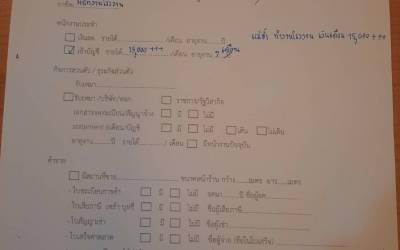 อาชีพ พนักงานโรงงาน
พนักงานประจำ
เงินสด รายได้........./เดือน อายุงาน.....ปี
เข้าบัญชี รายได้ 15,000 +++ /เดือน อายุงาน 7 เดือน
แม่ค้า ทำงานโรงงาน เงินเดือน 15,000 +++
กิจการส่วนตัว / ธุรกิจส่วนตัว
รับเหมา
รับเหมา/บริษัท/หจก ราชการ/รัฐวิสาหกิจ
เอกสารจดทะเบียน/สัญญาจ้าง มี ไม่มี
มี ไม่มี เดิน ไม่เดิน
อายุงาน.....ปี รายได้........./เดือน มีหน้างานปัจจุบัน
ค้าขาย
มีสถานที่ขาย ขนาดหน้าร้าน กว้าง.....เมตร ยาว.....เมตร
- ใบทะเบียนการค้า มี ไม่มี จดมา.....ปี ชื่อผู้จด
- ใบเสียภาษี มี ไม่มี ชื่อผู้เสียภาษี
- ใบสัญญาเช่า มี ไม่มี ชื่อผู้เช่า
- ใบเสร็จค่าตลาด มี ไม่มี ชื่อผู้จ่าย (ชื่อในใบเสร็จ)